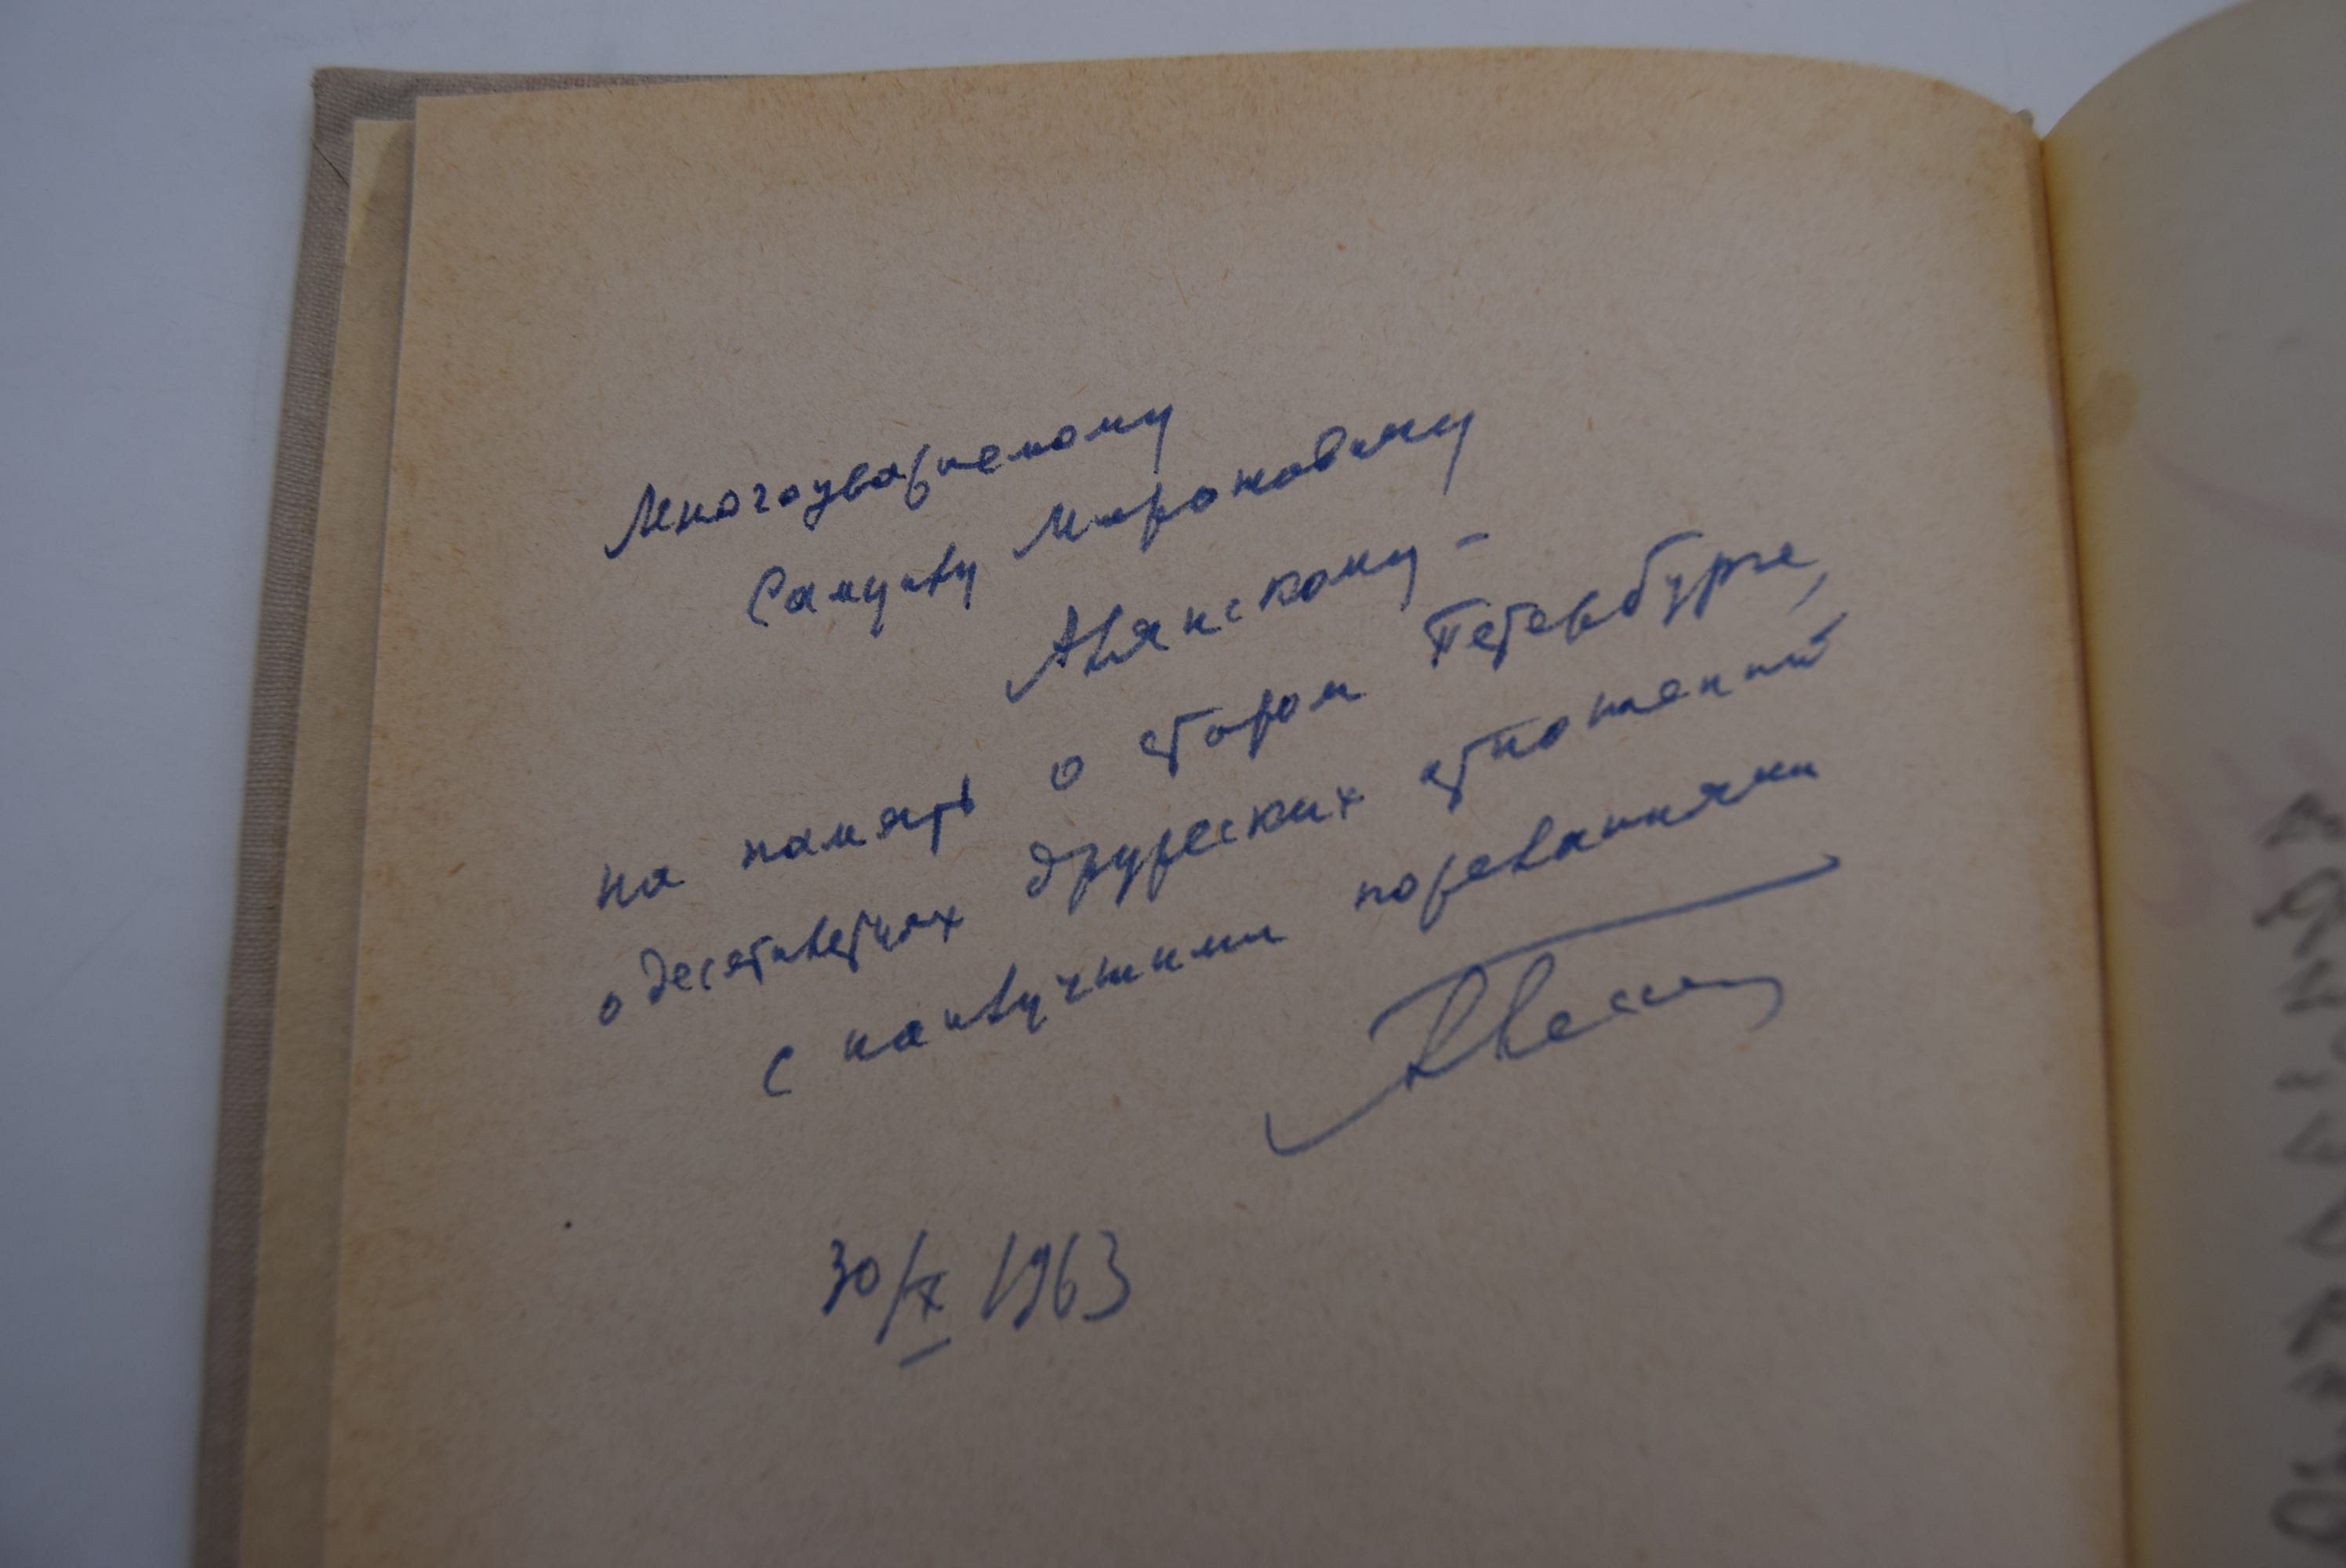 Многоуважаемому
Самуилу Мироновичу
Алянскому -
на память о старом Петербурге,
о десятилетиях дружеских отношений
с наилучшими пожеланиями
30/X 1963